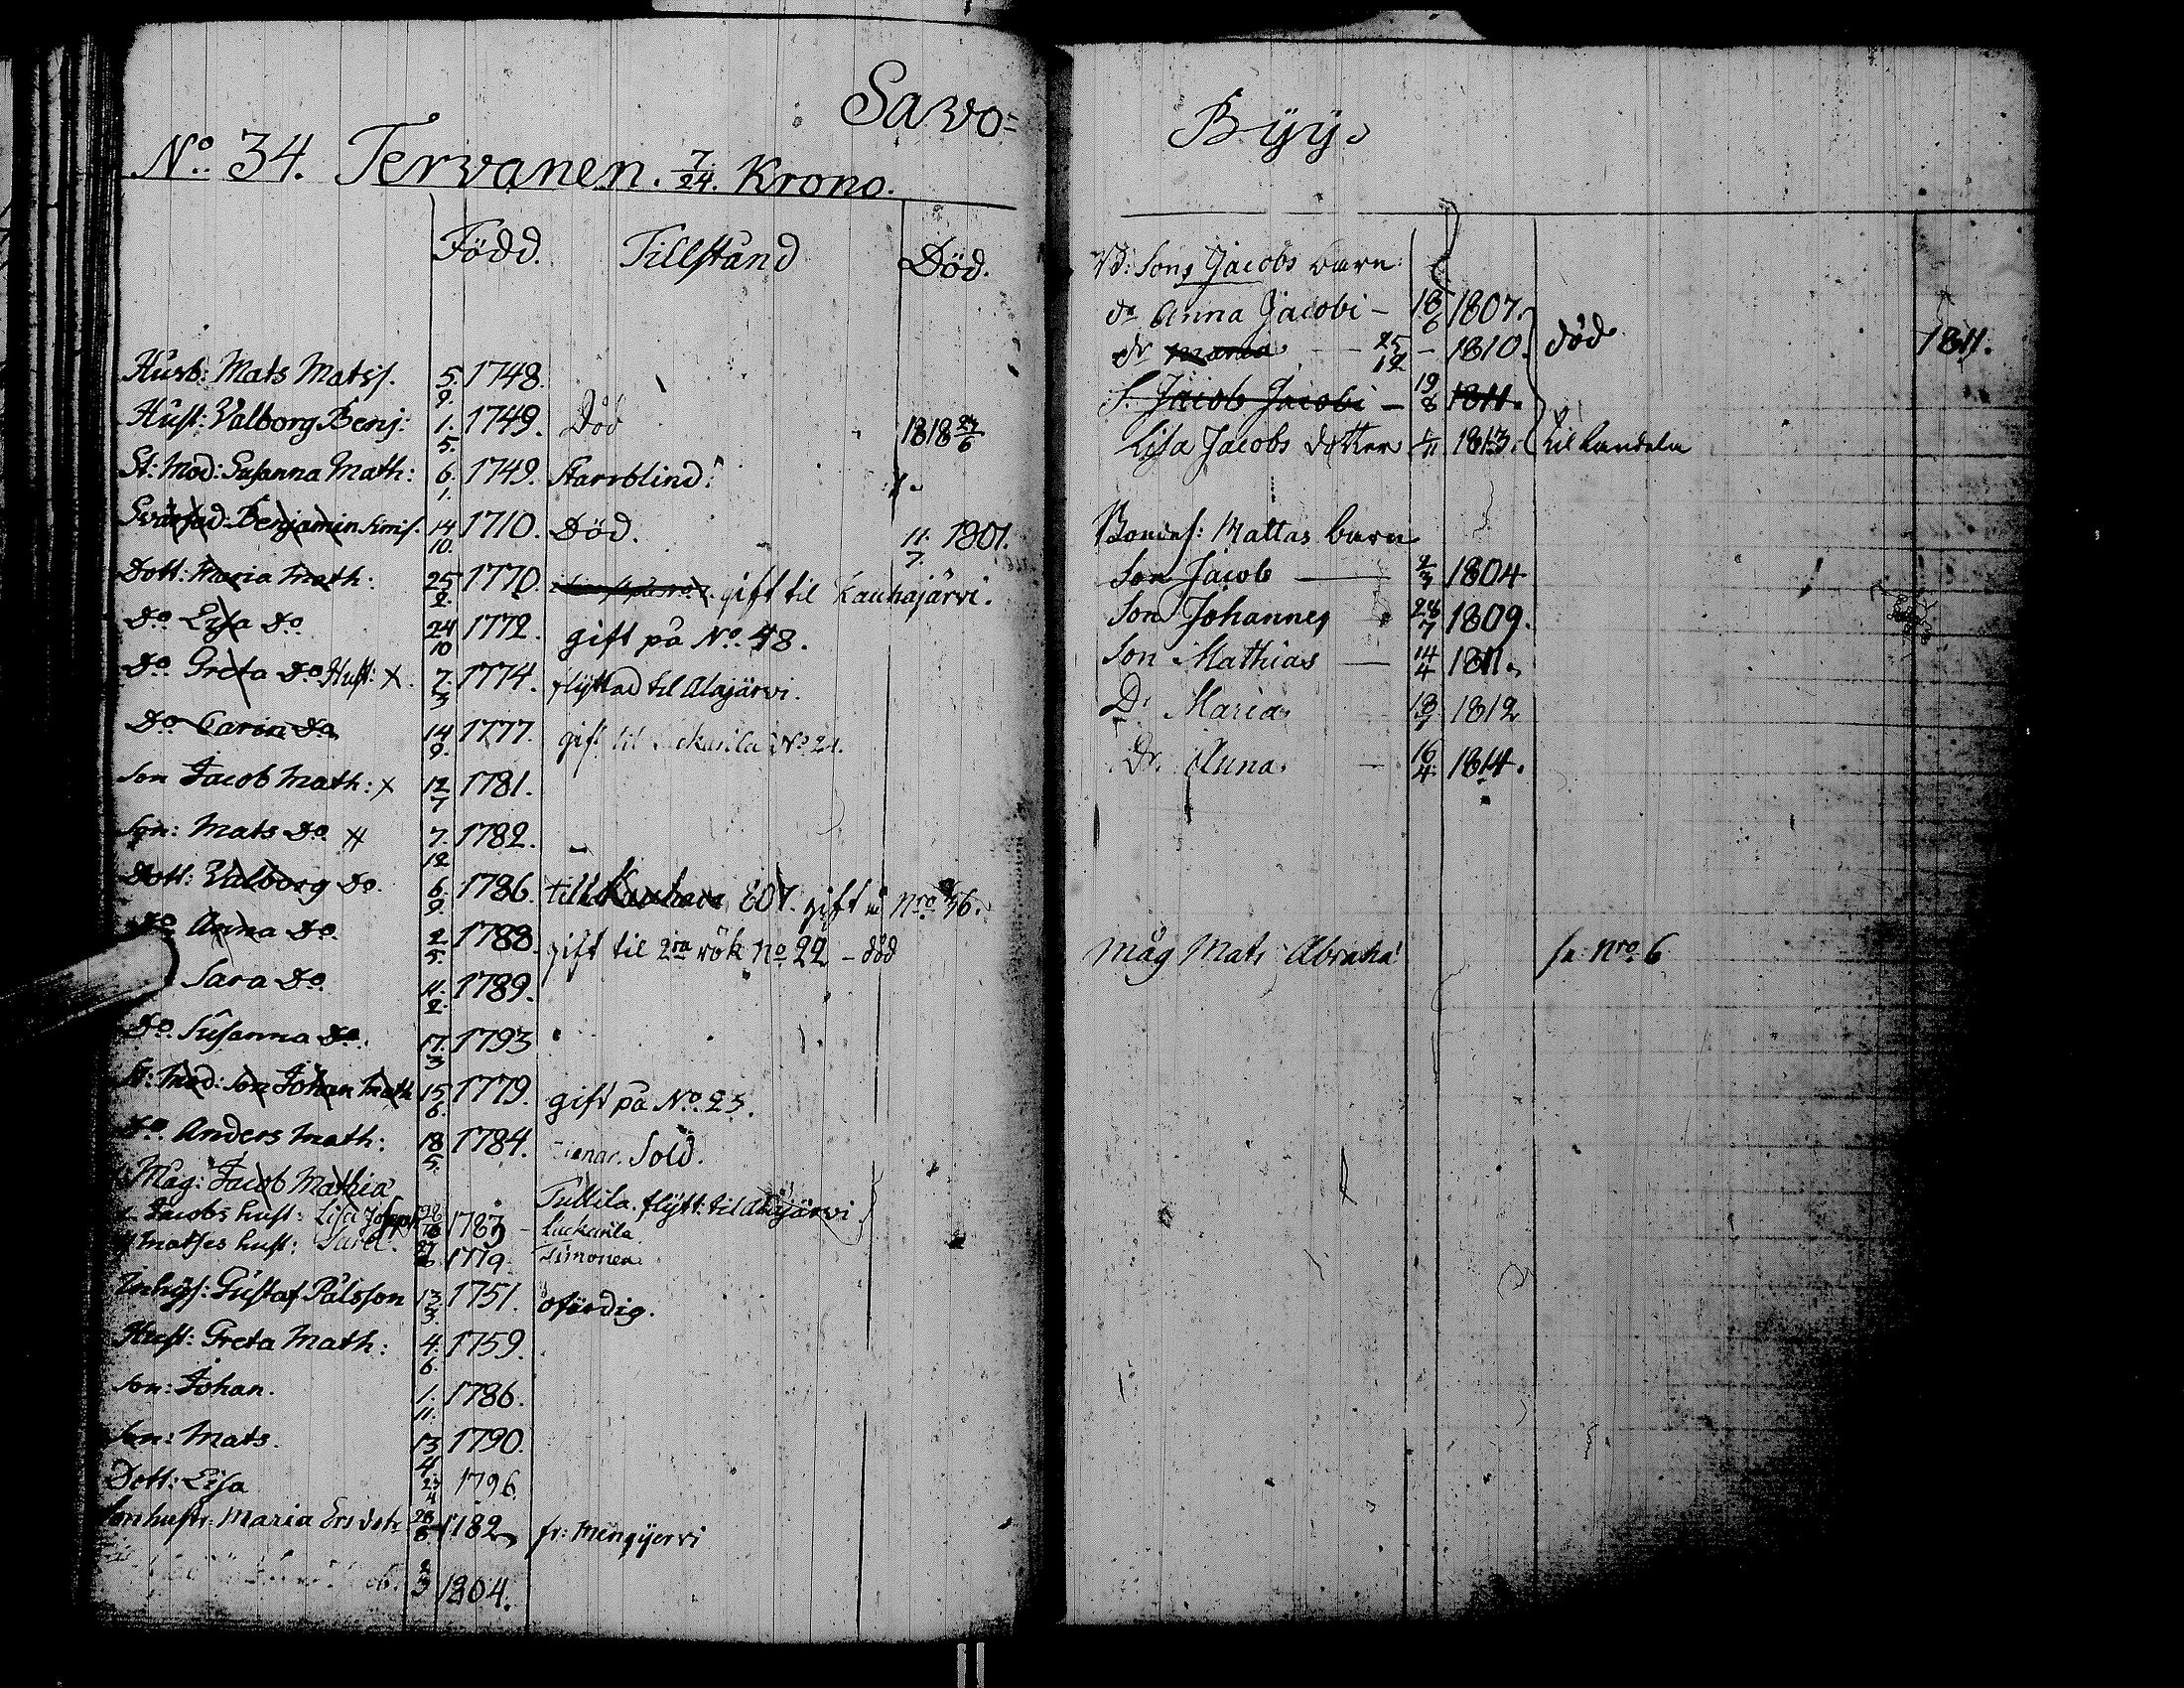 Savo=
No. 34. Tervanen. 7/24. Krono.
Född. Tillstånd Död.
Husb: Mats Matss. 5/9. 1748.
Hust: Valborg Benj: 1/5. 1749. Död 1818 24/6
St: Mod: Susanna Math: 6/1. 1749. Starrblind.
Svärfad: Benjamin Sims. 14/10. 1710. Död. 11/7. 1801.
Dott: Maria Math: 25/2. 1770. gift til Kauhajärvi.
Do. Lisa Do. 24/10 1772. gift på No. 48.
Do. Greta Do. Hust: x. 7/3 1774. flyttad til Alajärvi.
Do. Carin Do. 14/9. 1777. gift til Luckarila No. 21.
Son Jacob Math: x 12/7 1781.
Son: Mats Do. # 7/12 1782.
Dott: Valborg Do. 6/9. 1786. till Kauhava 807. gift på nro 36.
Do. Anna Do. 2/5. 1788. gift til 2ra rök No 22 - död
Sara Do. 11/2. 1789.
Do. Susanna Do. 17/3 1793
St: Mod: Son Johan Math 15/6. 1779. gift på No. 25.
Do. Anders Math: 18/5. 1784. Sold.
Måg: Jacob Mathia Tullila. flytt: til Alajärvi
x Jacobs hust: Lisa 1783 - Luckarila
# Matses hust: 1779 Simonen
Inhys: Gustaf Pålsson 13/3. 1751. ofärdig.
Hust: Greta Math: 4/6. 1759.
Son: Johan. 1/11. 1786.
Son: Mats. 13/4 1790.
Dott: Lisa 23/4 1796.
Sonhustr: Maria Ers dotr 28/8. 1782 fr: Menqyervi
2/3 1804.
Byy.
Vd: Sons Jacobs barn:
dr Anna Jacobi - 18/6 1807.
dr Maria - 25/12 - 1810. död 1811.
S. Jacob Jacobi - 19/8 1811.
Lisa Jacobs dotter 1813. til Landela
Bondes: Mattas barn
Son Jacob 2/3 1804
Son Johannes 28/7 1809.
Son Mathias 14/4 1811.
D. Maria 18/7 1812
Dr. Anna 16/4. 1814.
Måg Mats Abraha se nro. 6